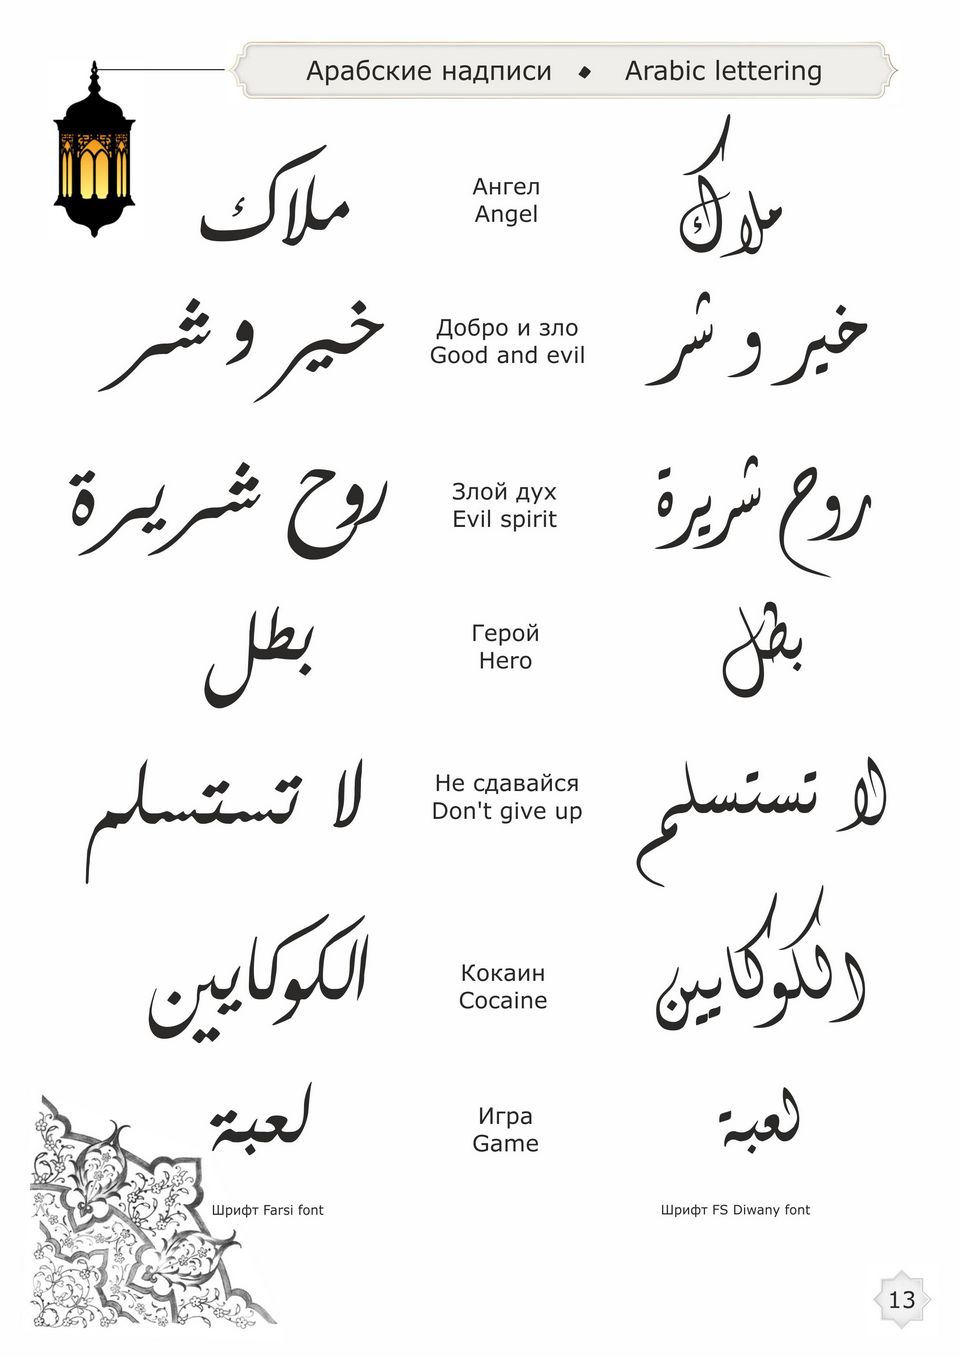 Арабские надписи ◆ Arabic lettering
ملاك Ангел ملاك
Angel
خير و شر Добро и зло خير و شر
Good and evil
روح شريرة Злой дух روح شريرة
Evil spirit
بطل Герой بطل
Hero
لا تستسلم Не сдавайся لا تستسلم
Don't give up
الكوكايين Кокаин الكوكايين
Cocaine
لعبة Игра لعبة
Game
Шрифт Farsi font Шрифт FS Diwany font
13